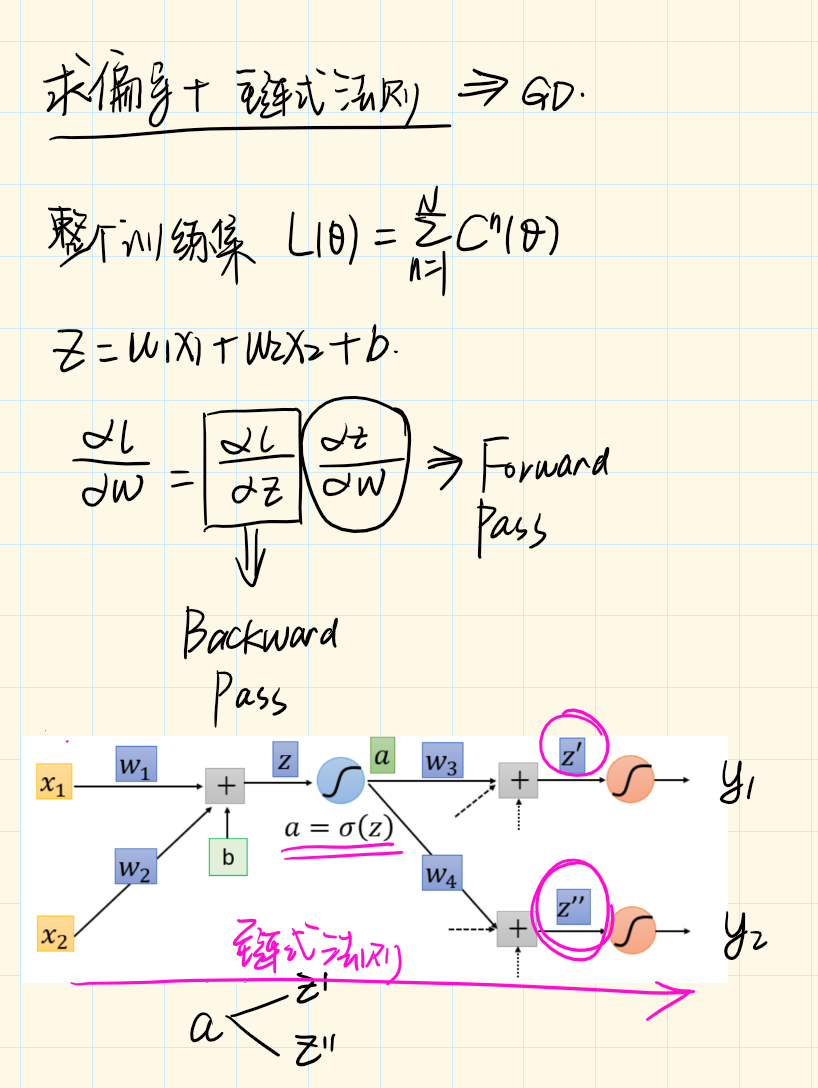 求偏导+ 链式法则 ⇒ GD.
整个训练集 L(θ) = \sum_{n=1}^{N} C^n(θ)
z = w₁x₁ + w₂x₂ + b.
∂l/∂w = ∂l/∂z ∂z/∂w ⇒ Forward
Pass
⇓
Backward
Pass
x₁ w₁ + z a w₃ + z′ y₁
a = σ(z)
w₂ b w₄
x₂ + z′′ y₂
链式法则
a < z′
z′′